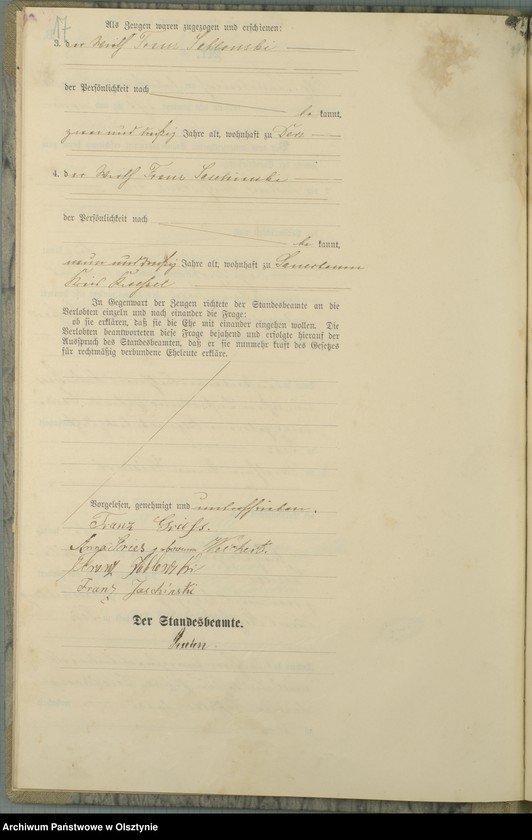 17
Als Zeugen waren zugezogen und erschienen:
3. der Wirth Franz Jablonski
der Persönlichkeit nach
be kannt,
zwei und dreißig Jahre alt, wohnhaft zu
4. der Wirth Franz Jaschinski
der Persönlichkeit nach
be kannt,
neun und dreißig Jahre alt, wohnhaft zu
Kreis Roessel
In Gegenwart der Zeugen richtete der Standesbeamte an die
Verlobten einzeln und nach einander die Frage:
ob sie erklären, daß sie die Ehe mit einander eingehen wollen. Die
Verlobten beantworteten diese Frage bejahend und erfolgte hierauf der
Ausspruch des Standesbeamten, daß er sie nunmehr kraft des Gesetzes
für rechtmäßig verbundene Eheleute erkläre.
Vorgelesen, genehmigt und unterschrieben.
Franz
Anna geborene
Franz Jablonski
Franz Jaschinski
Der Standesbeamte.
Archiwum Państwowe w Olsztynie